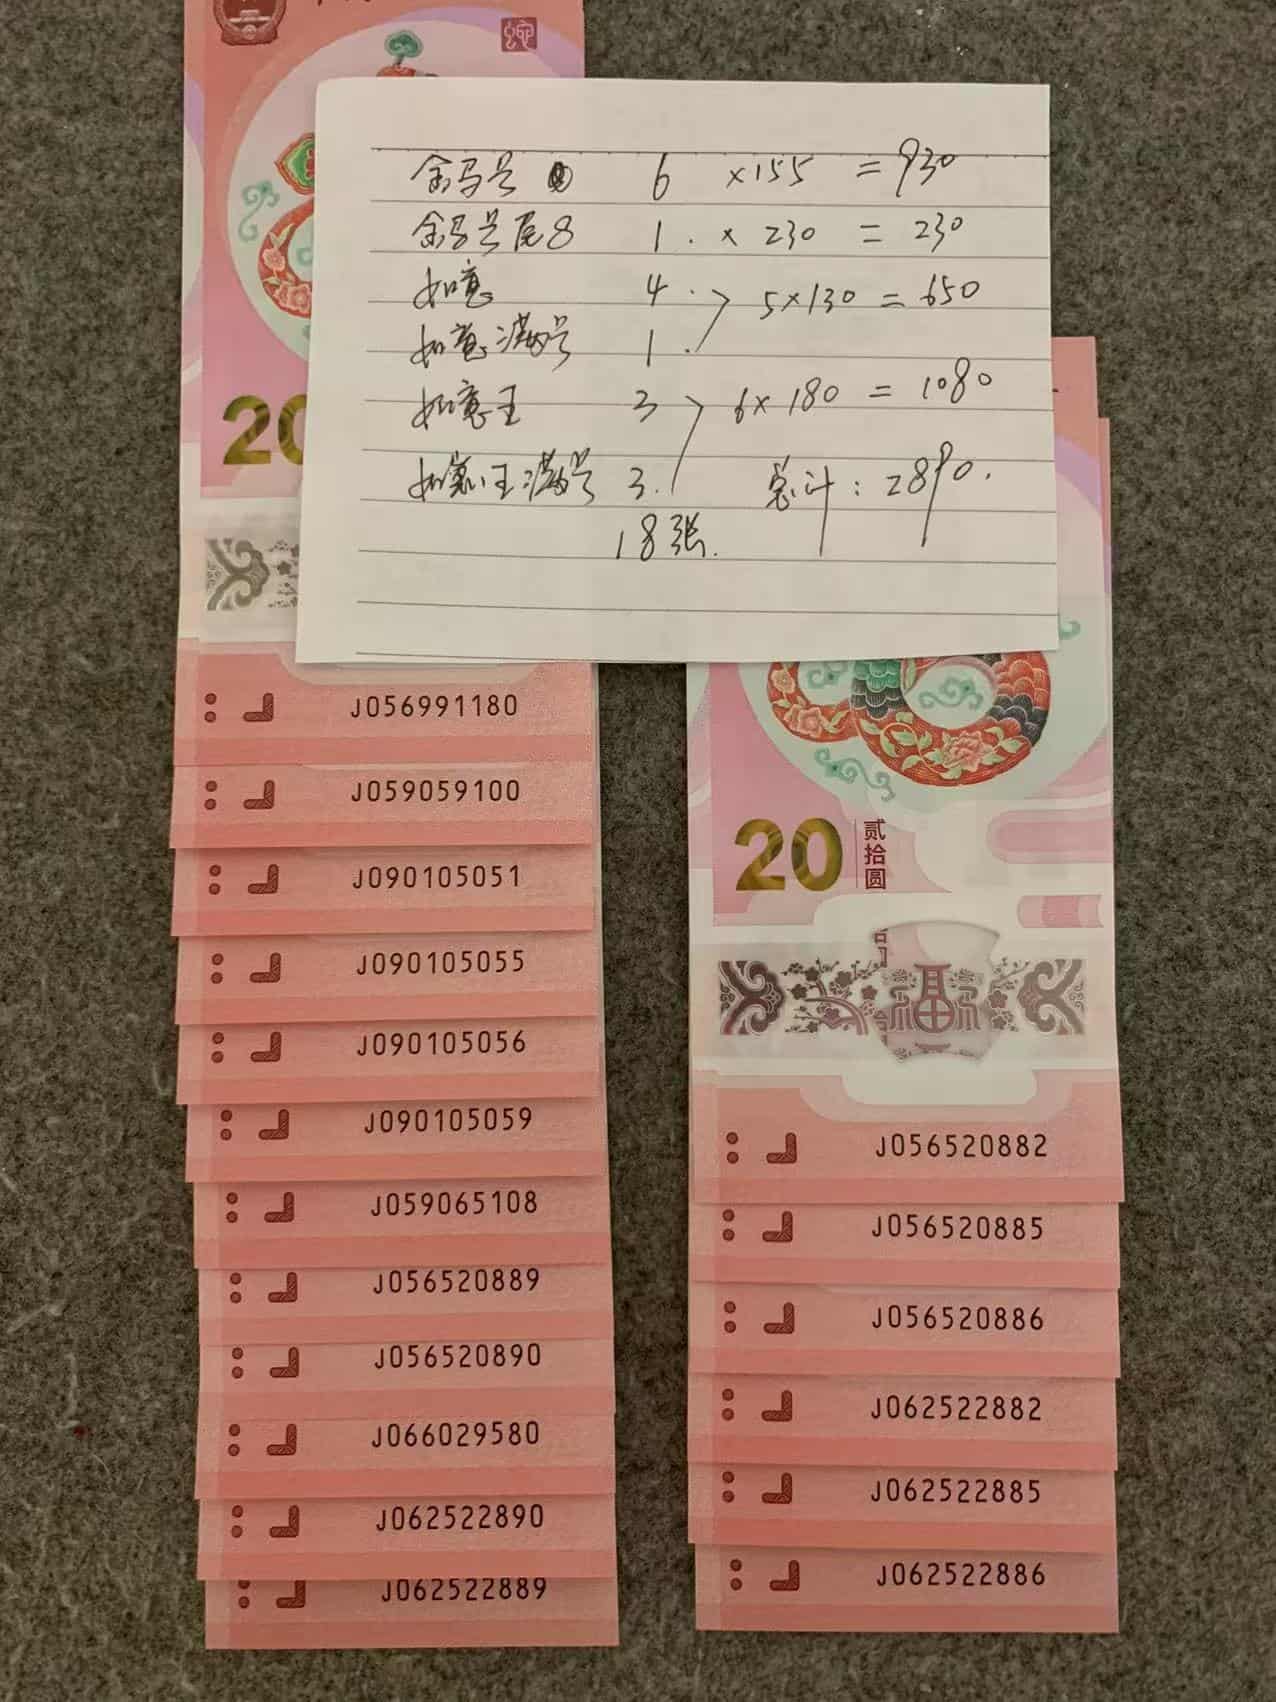 金马号 6 ×155 = 930
金马号尾8 1. × 230 = 230
如意 4. 5×130 = 650
如意满号 1.
如意王 3 6×180 = 1080
如意王满号 3. 总计: 2890.
18张.
20
J056991180
J059059100
J090105051
J090105055
J090105056
J090105059
J059065108
J056520889
J056520890
J066029580
J062522890
J062522889
20 贰拾圆
福
J056520882
J056520885
J056520886
J062522882
J062522885
J062522886